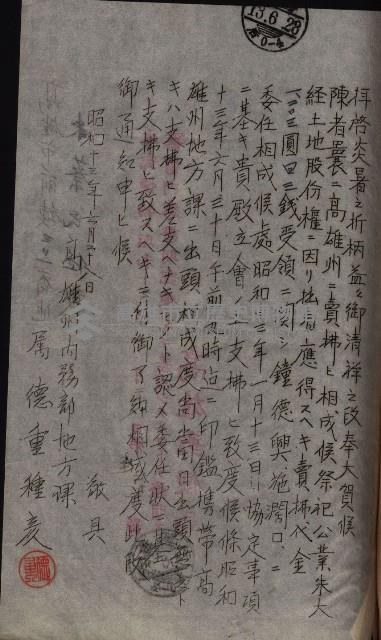 13.6.28
后0-4
拝啓炎暑之折柄益々御清祥之段奉大賀候
陳者曩ニ高雄州ニ賣拂ヒ相成候祭祀公業朱大
経土地股份權ニ因リ應得スヘキ賣拂代金
圓四三銭受領ニ関シ鐘德興施濶口ニ
委任相成候處昭和十三年一月十三日協定事項
ニ基キ貴殿立會ノ上支拂ヒ致度候條昭和
十三年六月三十日午前九時迠ニ印鑑携帯高
雄州地方課ニ出頭相成度尚當日出頭ナ
キハ支拂ヒ差支ヘナキモノト認メ委任状ニ基
キ支拂ヒ致スヘキニ付御了知相成度此段
御通知申ヒ候
敬具
昭和十三年六月二十八日
高雄州内務部地方課
属 德重種彦